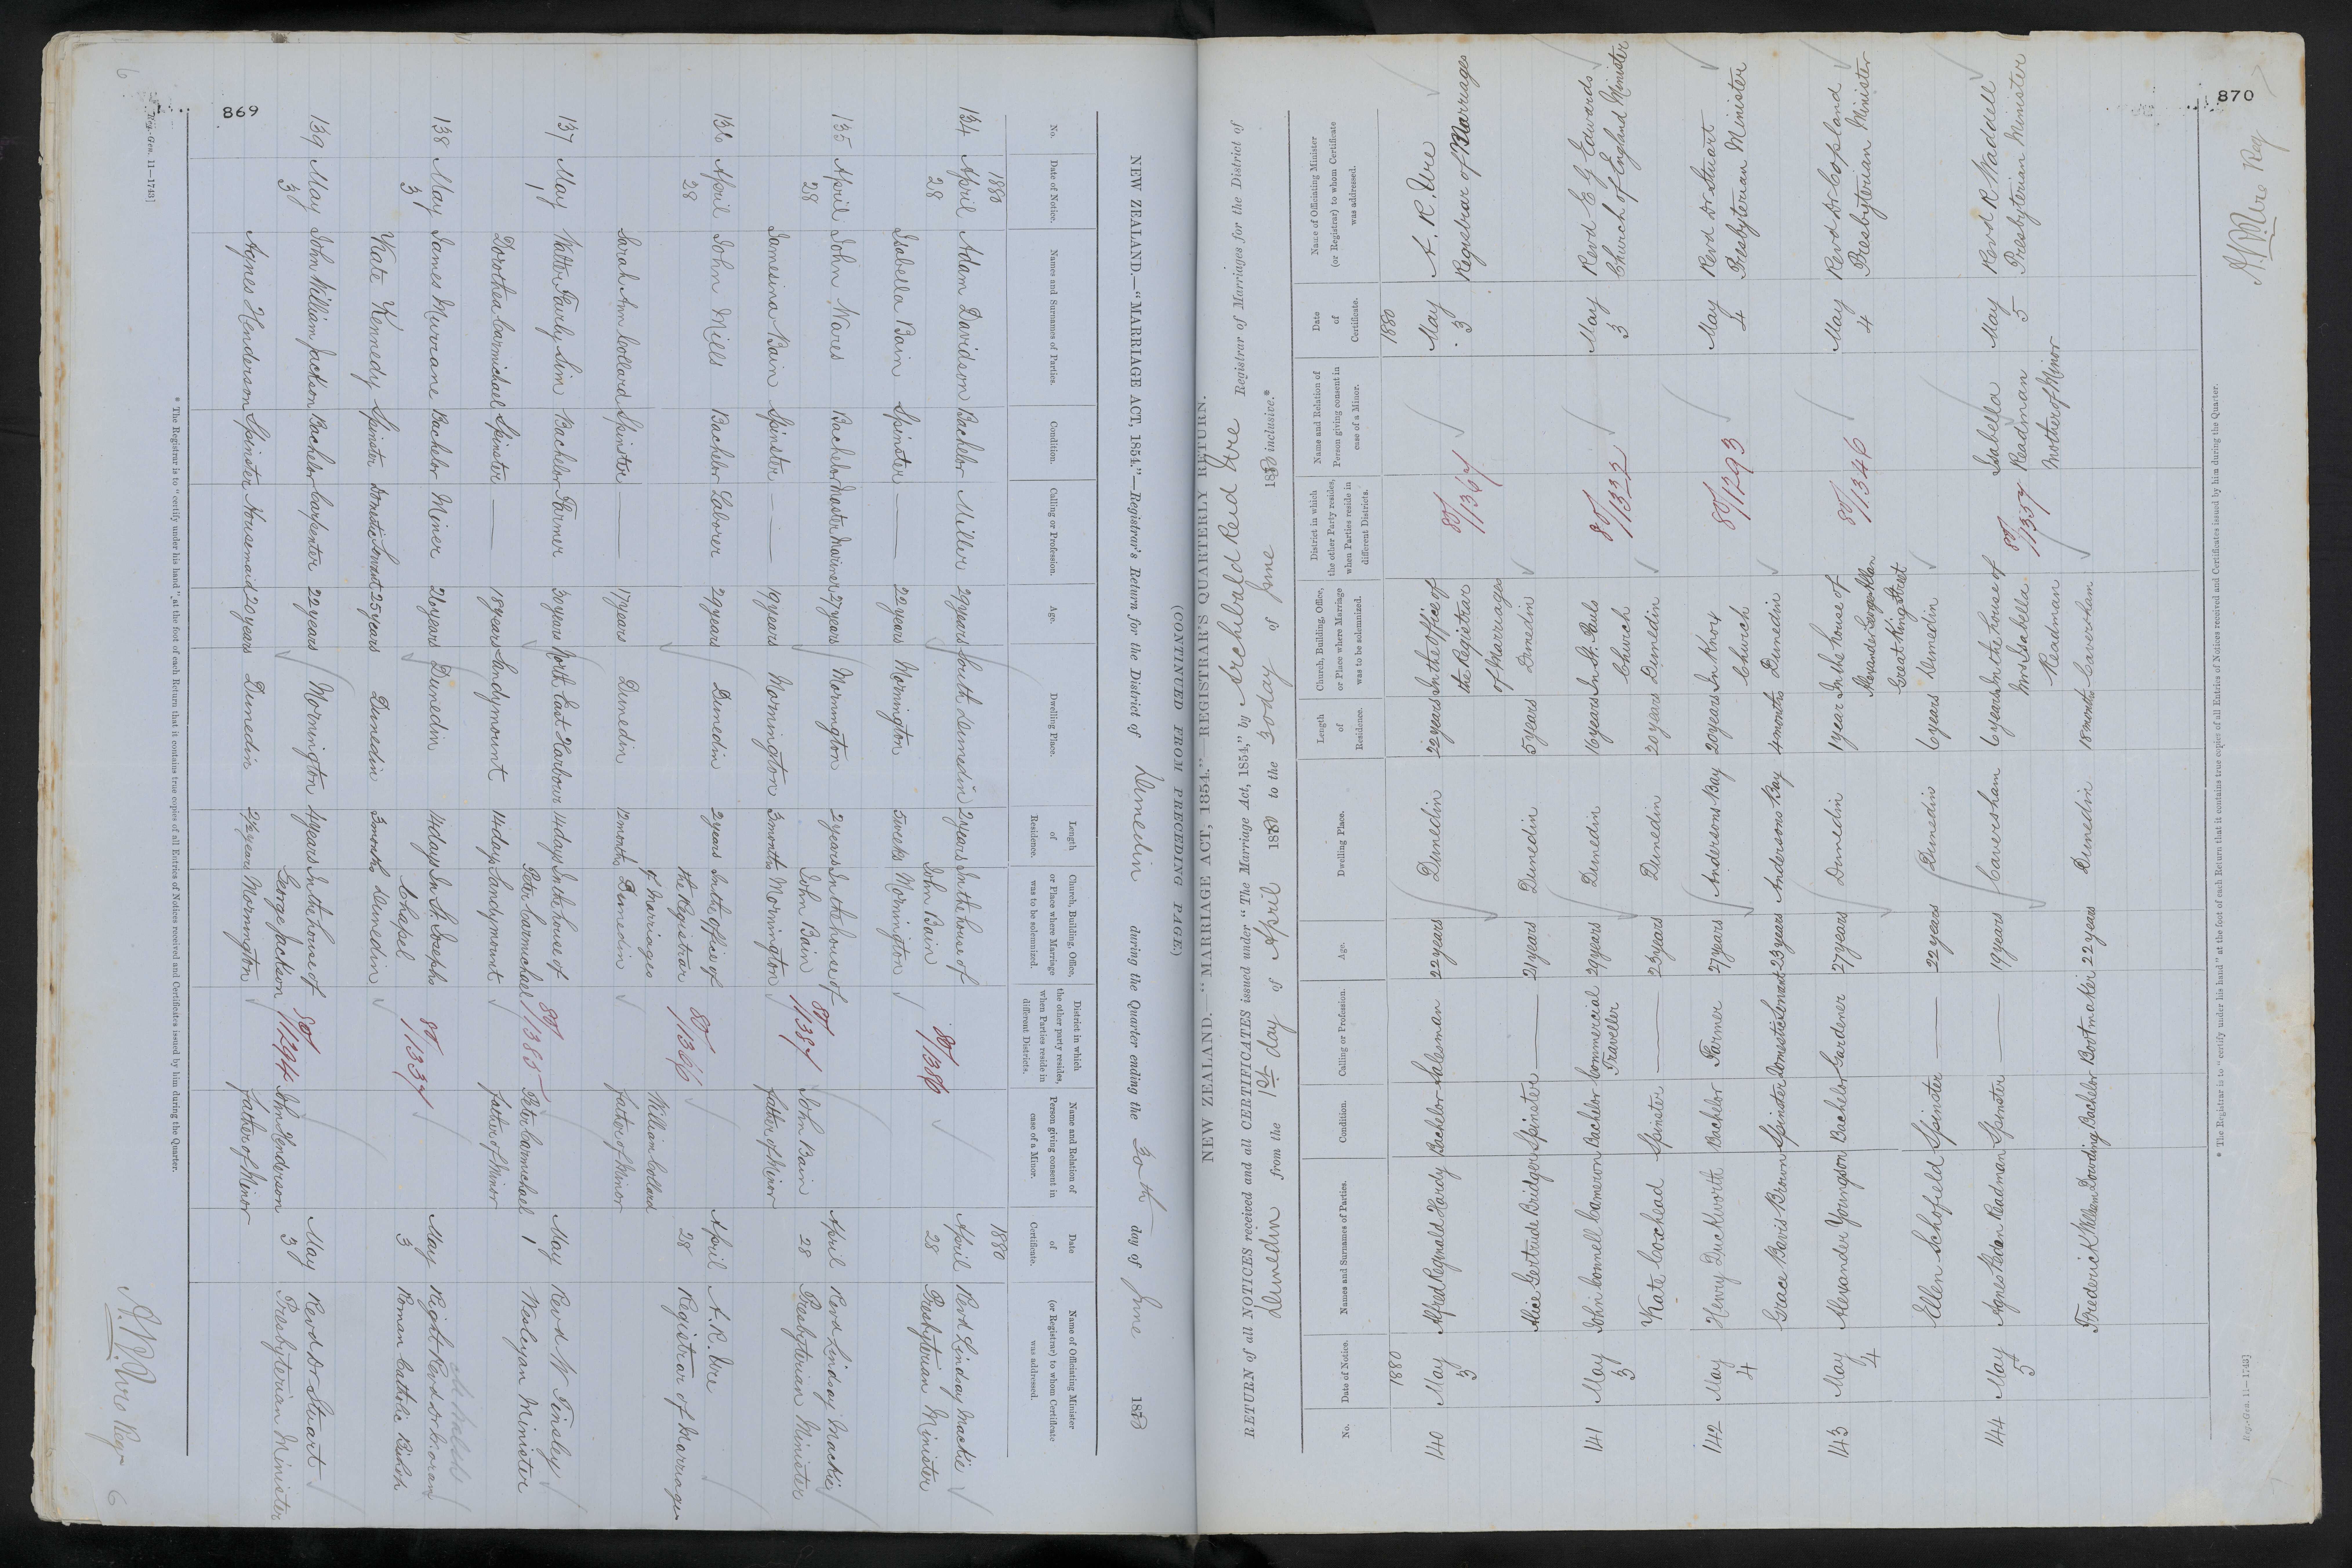 869
NEW ZEALAND.—"MARRIAGE ACT, 1854."—Registrar's Return for the District of Dunedin during the Quarter ending the 30th day of June 1880
(CONTINUED FROM PRECEDING PAGE.)
No. Date of Notice. Names and Surnames of Parties. Condition. Calling or Profession. Age. Dwelling Place. Length of Residence. Church, Building, Office, or Place where Marriage was to be solemnized. District in which the other party resides, when Parties reside in different Districts. Name and Relation of Person giving consent in case of a Minor. Date of Certificate. Name of Officiating Minister (or Registrar) to whom Certificate was addressed.
1880 1880
134 April 28 Adam Davidson Bachelor Miller 29 years South Dunedin 2 years In the house of John Bain 80/1386 April 28 Revd Lindsay Mackie Presbyterian Minister
Isabella Bain Spinster — 22 years Mornington 5 weeks Mornington
135 April 28 John Wares Bachelor Master Mariner 27 years Mornington 2 years In the house of John Bain 80/1387 John Bain April 28 Revd Lindsay Mackie Presbyterian Minister
Jamesina Bain Spinster — 19 years Mornington 3 months Mornington father of Minor
136 April 28 John Mills Bachelor Laborer 29 years Dunedin 2 years In the office of the Registrar of Marriages 80/1366 William Collard April 28 A. R. Ure Registrar of Marriages
Sarah Ann Collard Spinster — 17 years Dunedin 12 months Dunedin father of Minor
137 May 1 Walter Fairly Sim Bachelor Farmer 30 years North East Harbour 14 days In the house of Peter Carmichael 80/1385 Peter Carmichael May 1 Revd W Tinsley Wesleyan Minister
Dorothea Carmichael Spinster — 18 years Sandymount 14 days Sandymount father of Minor
138 May 3 James Murrane Bachelor Miner 26 years Dunedin 14 days In St. Josephs Chapel 80/1337 May 3 Right Revd Dr Moran Roman Catholic Bishop
Kate Kennedy Spinster Domestic Servant 25 years Dunedin 3 months Dunedin
139 May 3 John William Jackson Bachelor Carpenter 22 years Mornington 4 years In the house of George Jackson 80/1294 John Henderson May 3 Revd Dr Stuart Presbyterian Minister
Agnes Henderson Spinster Housemaid 20 years Dunedin 2½ years Mornington father of Minor
* The Registrar is to "certify under his hand" at the foot of each Return that it contains true copies of all Entries of Notices received and Certificates issued by him during the Quarter.
Reg.-Gen. 11—1743]
A. R. Ure Reg
6
870
NEW ZEALAND.—"MARRIAGE ACT, 1854."—REGISTRAR'S QUARTERLY RETURN.
RETURN of all NOTICES received and all CERTIFICATES issued under "The Marriage Act, 1854," by Archibald Reid Ure Registrar of Marriages for the District of
Dunedin from the 1st day of April 1880 to the 30 day of June 1880 inclusive.*
No. Date of Notice. Names and Surnames of Parties. Condition. Calling or Profession. Age. Dwelling Place. Length of Residence. Church, Building, Office, or Place where Marriage was to be solemnized. District in which the other Party resides, when Parties reside in different Districts. Name and Relation of Person giving consent in case of a Minor. Date of Certificate. Name of Officiating Minister (or Registrar) to whom Certificate was addressed.
1880 1880
140 May 3 Alfred Reginald Hardy Bachelor Salesman 22 years Dunedin 22 years In the Office of the Registrar of Marriages 80/1367 May 3 A. R. Ure Registrar of Marriages
Alice Gertrude Bridger Spinster — 21 years Dunedin 5 years Dunedin
141 May 3 John Connell Cameron Bachelor Commercial Traveller 29 years Dunedin 16 years In St. Pauls Church 80/1322 May 3 Revd E G Edwards Church of England Minister
Kate Cochead Spinster — 23 years Dunedin 20 years Dunedin
142 May 4 Henry Duckworth Bachelor Farmer 27 years Andersons Bay 20 years In Knox Church 80/1293 May 4 Revd Dr Stuart Presbyterian Minister
Grace Bavis Brown Spinster Domestic Servant 23 years Andersons Bay 4 months Dunedin
143 May 4 Alexander Youngson Bachelor Gardener 27 years Dunedin 1 year In the house of Alexander George Allan Great King Street 80/1346 May 4 Revd Dr Copland Presbyterian Minister
Ellen Schofield Spinster — 22 years Dunedin 6 years Dunedin
144 May 5 Agnes Readman Spinster — 19 years Caversham 6 years In the house of Mrs Isabella Readman 80/1357 Isabella Readman Mother of Minor May 5 Revd R Waddell Presbyterian Minister
Frederick William Dowding Bachelor Bootmaker 22 years Dunedin 18 months Caversham
* The Registrar is to "certify under his hand" at the foot of each Return that it contains true copies of all Entries of Notices received and Certificates issued by him during the Quarter.
Reg.-Gen. 11—1743]
A. R. Ure Reg